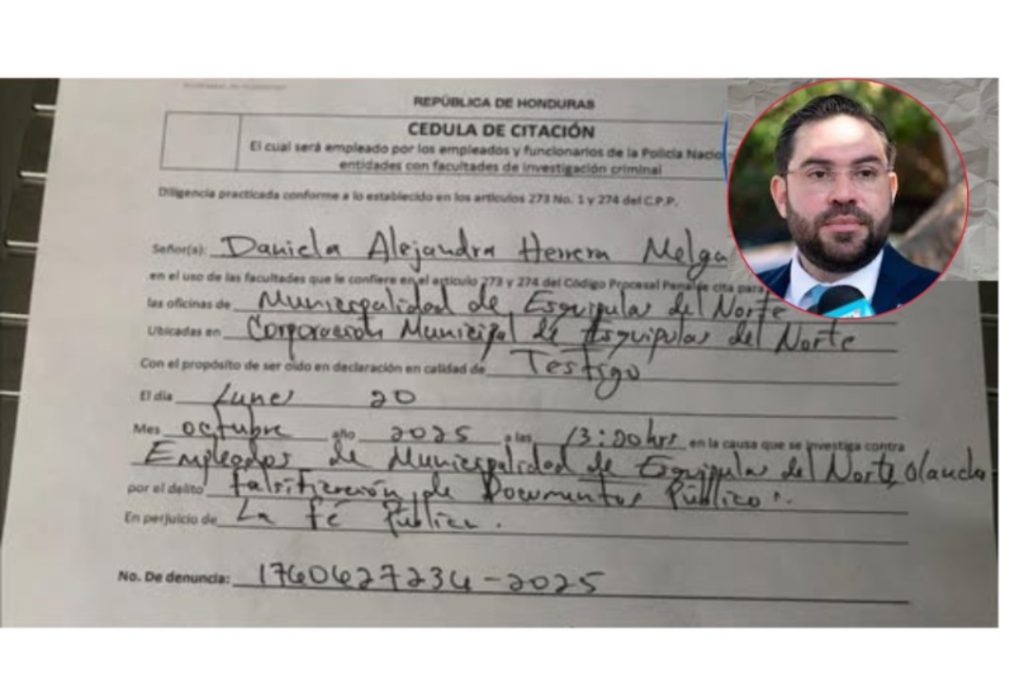 REPÚBLICA DE HONDURAS
CEDULA DE CITACIÓN
El cual será empleado por los empleados y funcionarios de la Policía Nacio
entidades con facultades de investigación criminal
Diligencia practicada conforme a lo establecido en los artículos 273 No. 1 y 274 del C.P.P.
Señor(a): Daniela Alejandra Herrera Melga
en el uso de las facultades que le confiere en el artículo 273 y 274 del Código Procesal Penal se cita para
las oficinas de Municipalidad de Esquipulas del Norte
Ubicadas en Corporación Municipal de Esquipulas del Norte
Con el propósito de ser oído en declaración en calidad de Testigo
El día Lunes 20
Mes octubre año 2025 a las 13:20hrs en la causa que se investiga contra
Empleados de Municipalidad de Esquipulas del Norte, Olancho
por el delito falsificación de Documentos Público
En perjuicio de La fé Pública.
No. De denuncia: 1760627234-2025